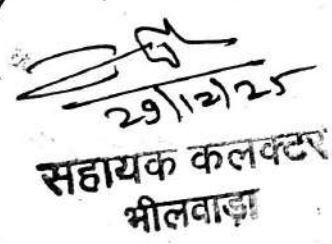 29/12/25
सहायक कलक्टर
भीलवाड़ा